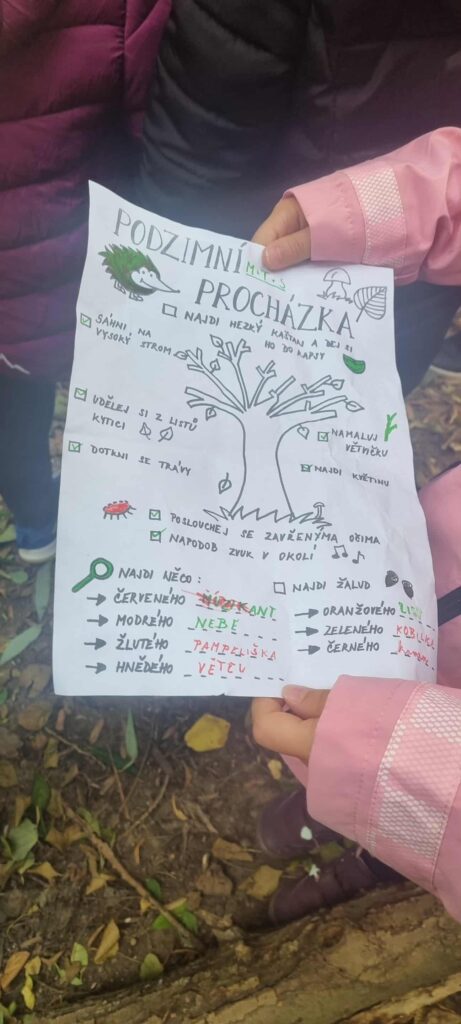 PODZIMNÍ
PROCHÁZKA
NAJDI HEZKÝ KAŠTAN A DEJ SI
HO DO KAPSY
SÁHNI NA
VYSOKÝ STROM
UDĚLEJ SI Z LISTŮ
KYTICI
DOTKNI SE TRÁVY
NAMALUJ
VĚTVIČKU
NAJDI KVĚTINU
POSLOUCHEJ SE ZAVŘENÝMA OČIMA
NAPODOB ZVUK V OKOLÍ
NAJDI NĚCO:
ČERVENÉHO
MODRÉHO NEBE
ŽLUTÉHO PAMPELIŠKA
HNĚDÉHO VĚTEV
NAJDI ŽALUD
ORANŽOVÉHO
ZELENÉHO KOBILKA
ČERNÉHO